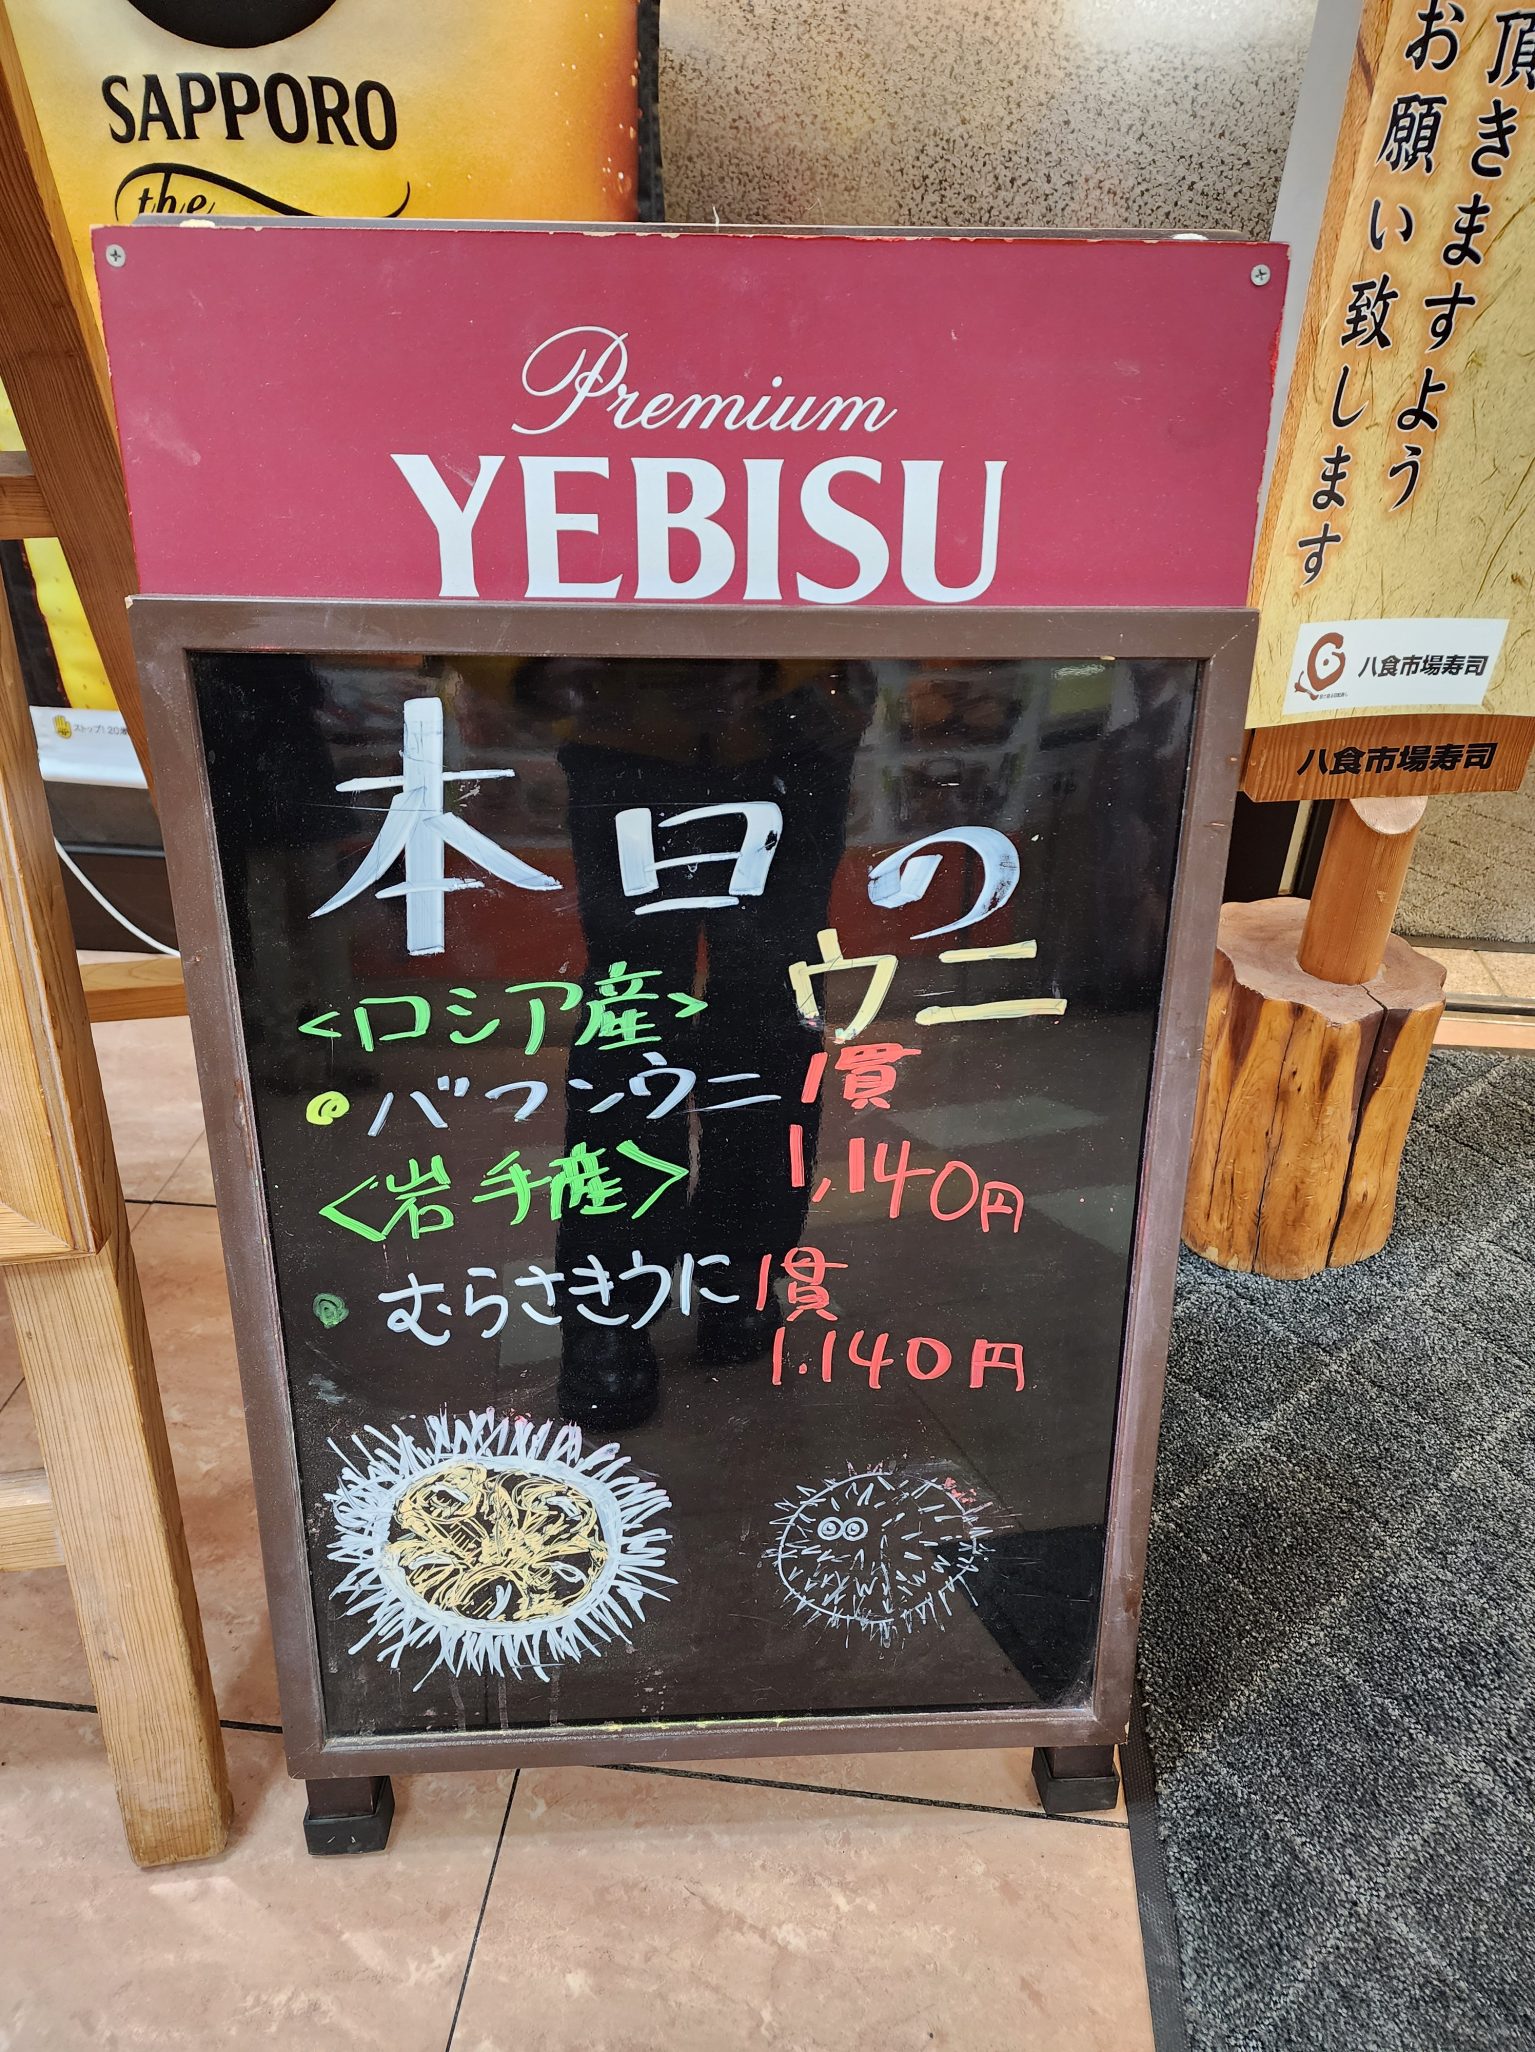 SAPPORO
the
Premium
YEBISU
本日の
ウニ
<ロシア産>
バフンウニ 1貫
1,140円
<岩手産>
むらさきうに 1貫
1.140円
頂きますよう
お願い致します
八食市場寿司
八食市場寿司
ストップ! 20